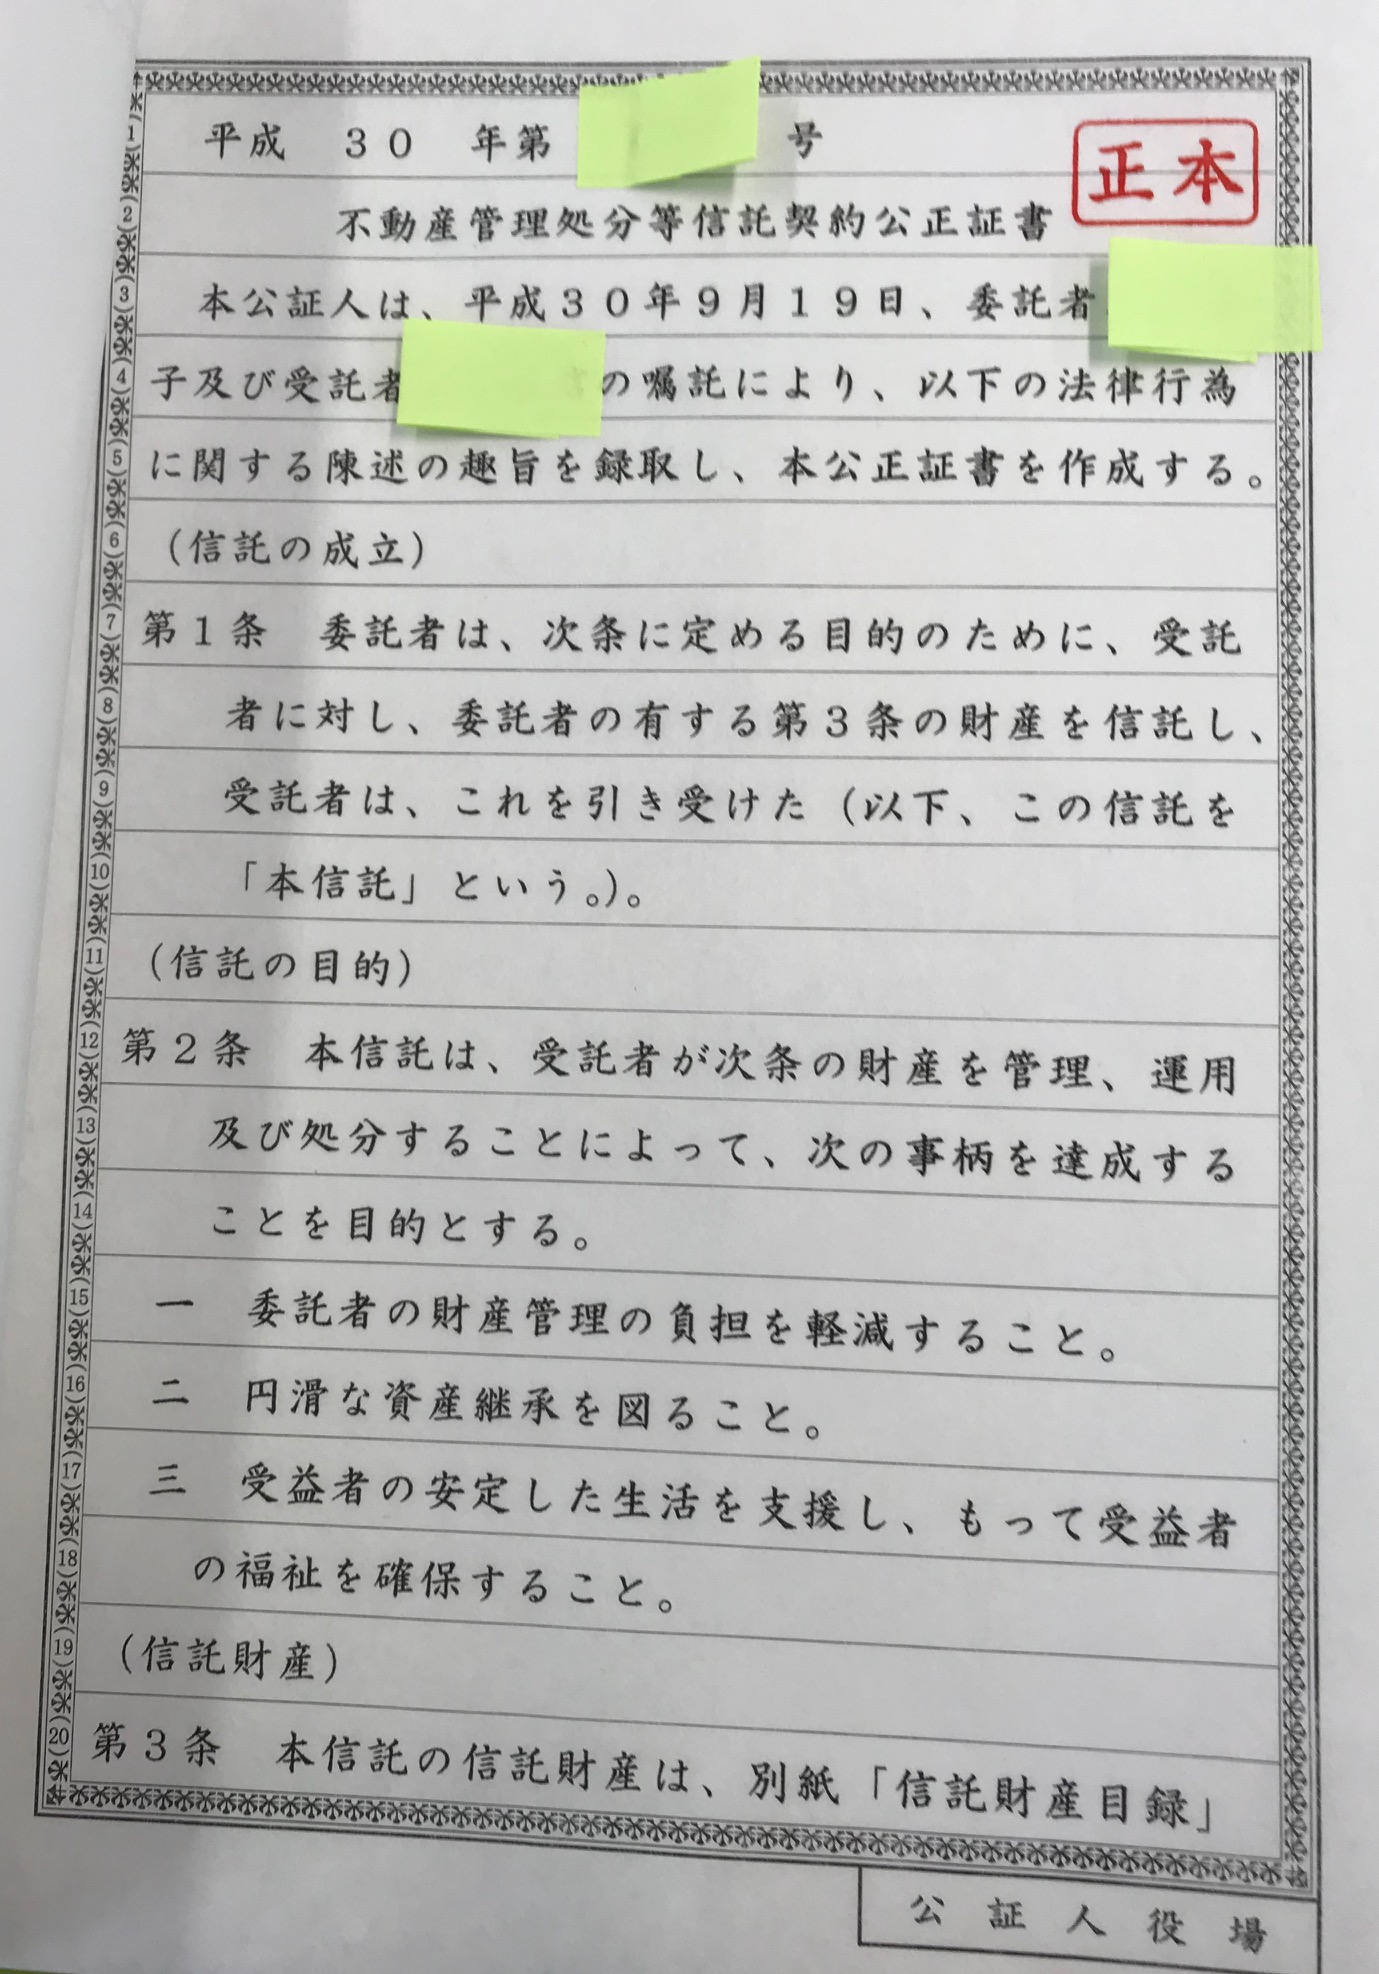 平成 30 年第 号
正本
不動産管理処分等信託契約公正証書
本公証人は、平成30年9月19日、委託者
子及び受託者 の嘱託により、以下の法律行為
に関する陳述の趣旨を録取し、本公正証書を作成する。
(信託の成立)
第1条 委託者は、次条に定める目的のために、受託
者に対し、委託者の有する第3条の財産を信託し、
受託者は、これを引き受けた(以下、この信託を
「本信託」という。)。
(信託の目的)
第2条 本信託は、受託者が次条の財産を管理、運用
及び処分することによって、次の事柄を達成する
ことを目的とする。
一 委託者の財産管理の負担を軽減すること。
二 円滑な資産継承を図ること。
三 受益者の安定した生活を支援し、もって受益者
の福祉を確保すること。
(信託財産)
第3条 本信託の信託財産は、別紙「信託財産目録」
公証人役場
1
2
3
4
5
6
7
8
9
10
11
12
13
14
15
16
17
18
19
20